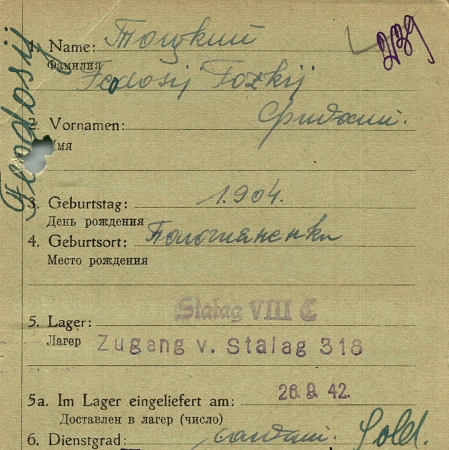 Feodosij
1. Name: Тоцкий
239
Фамилия
Feodosij Tozkij
2. Vornamen:
Имя
3. Geburtstag: 1.904.
День рождения
4. Geburtsort:
Место рождения
5. Lager: Stalag VIII C
Лагер Zugang v. Stalag 318
5a. Im Lager eingeliefert am: 26.9.42.
Доставлен в лагер (число)
6. Dienstgrad: Sold.